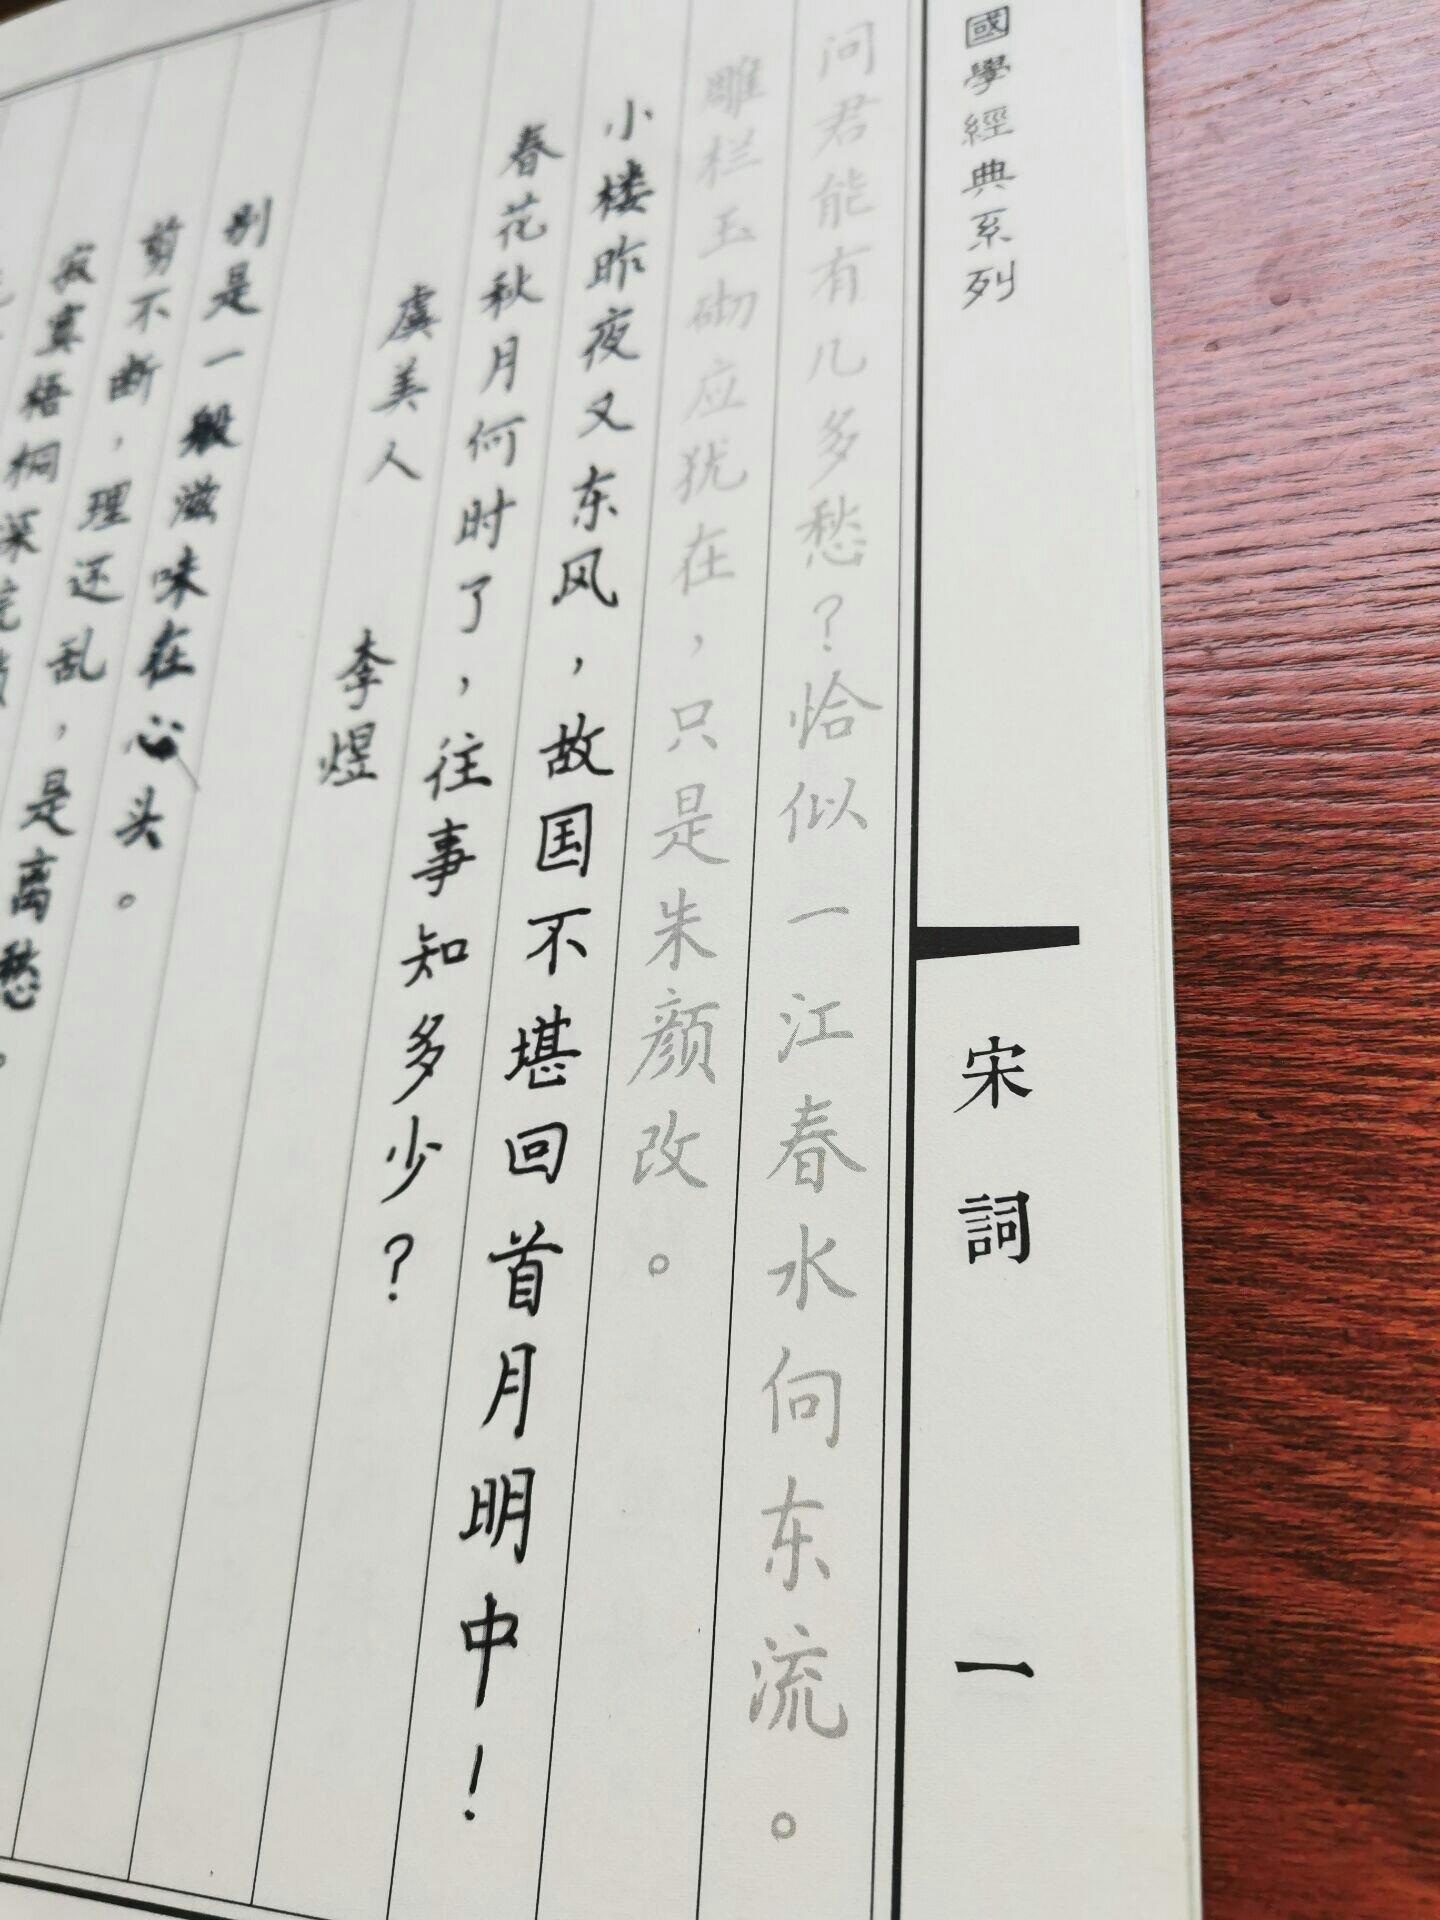 寂寞梧桐深院
剪不断，理还乱，是离愁。
别是一般滋味在心头。
虞美人 李煜
春花秋月何时了，往事知多少？
小楼昨夜又东风，故国不堪回首月明中！
雕栏玉砌应犹在，只是朱颜改。
问君能有几多愁？恰似一江春水向东流。
國學經典系列
宋詞
一